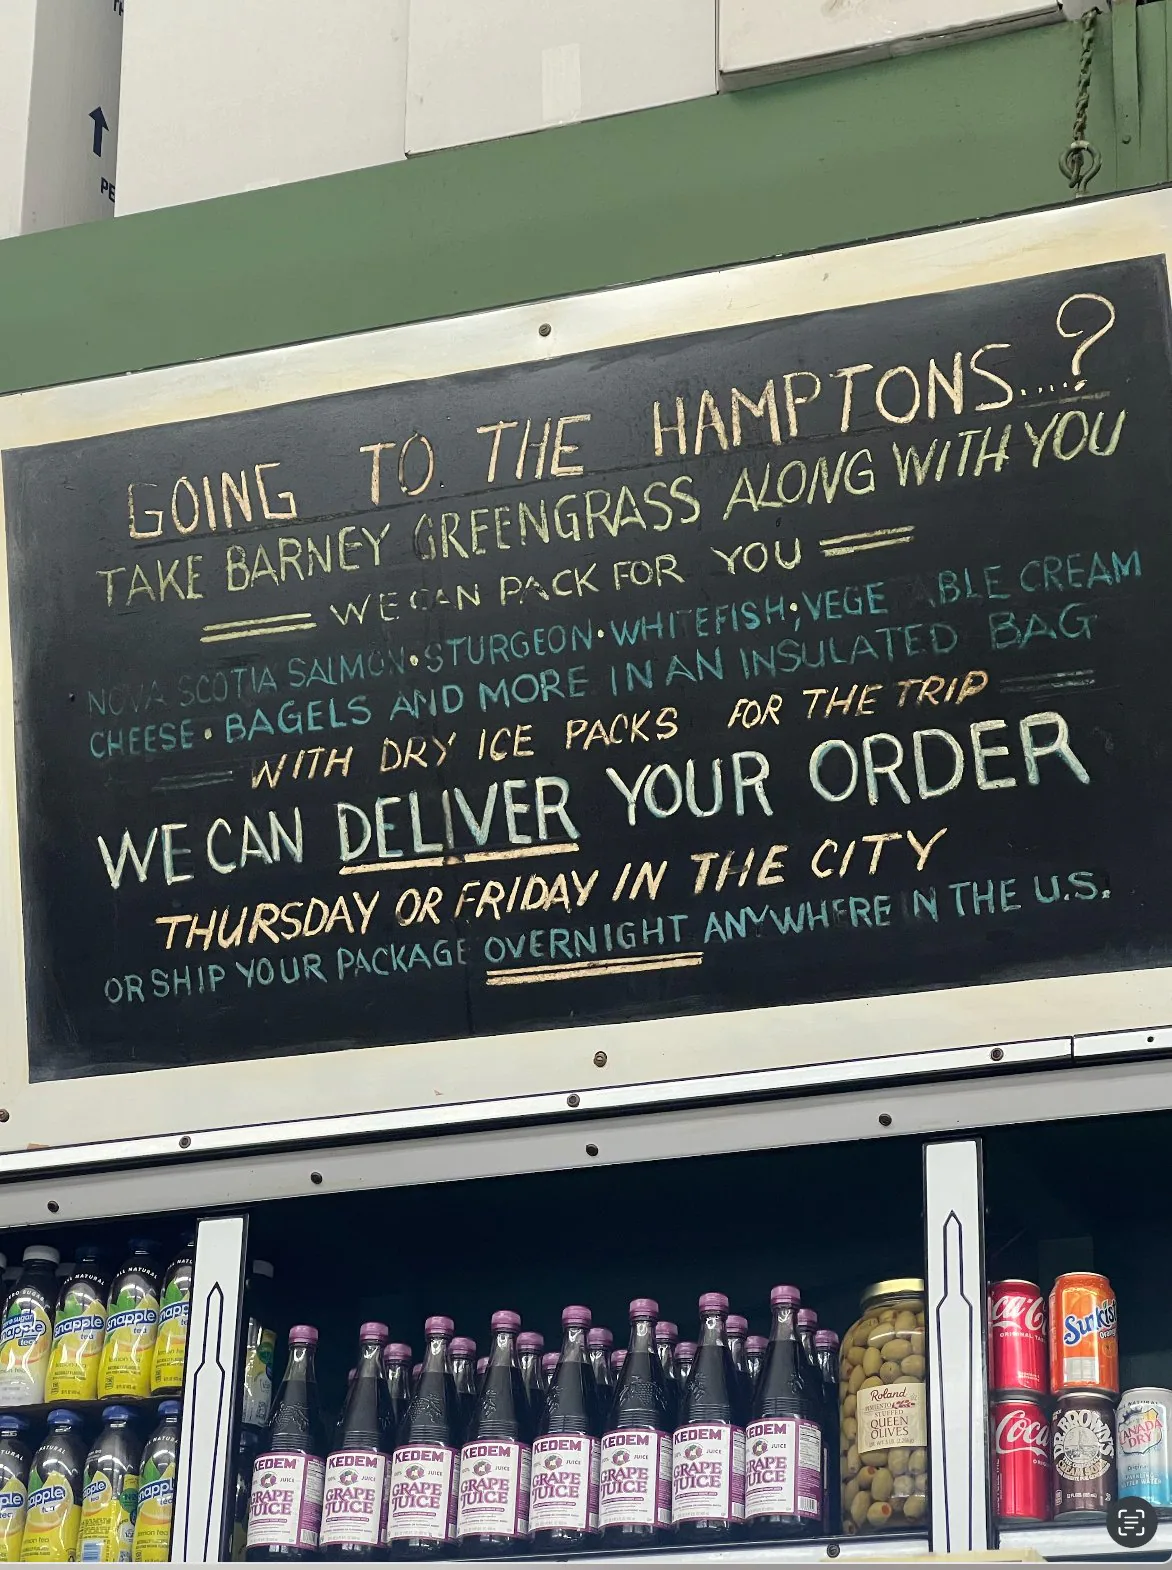 PE
GOING TO THE HAMPTONS....?
TAKE BARNEY GREENGRASS ALONG WITH YOU
WE CAN PACK FOR YOU
NOVA SCOTIA SALMON • STURGEON • WHITEFISH; VEGE ABLE CREAM
CHEESE • BAGELS AND MORE IN AN INSULATED BAG
WITH DRY ICE PACKS FOR THE TRIP
WE CAN DELIVER YOUR ORDER
THURSDAY OR FRIDAY IN THE CITY
OR SHIP YOUR PACKAGE OVERNIGHT ANYWHERE IN THE U.S.
Snapple
Snapple
Snapple
KEDEM
GRAPE
JUICE
KEDEM
GRAPE
JUICE
KEDEM
GRAPE
JUICE
KEDEM
GRAPE
JUICE
KEDEM
GRAPE
JUICE
KEDEM
GRAPE
JUICE
KEDEM
GRAPE
JUICE
KEDEM
GRAPE
JUICE
Roland
PIMIENTO
STUFFED
QUEEN
OLIVES
Coca-C
ORIGINAL TA
Sunkist
Coca
DR. BROWN'S
CREAM
CANADA
DRY